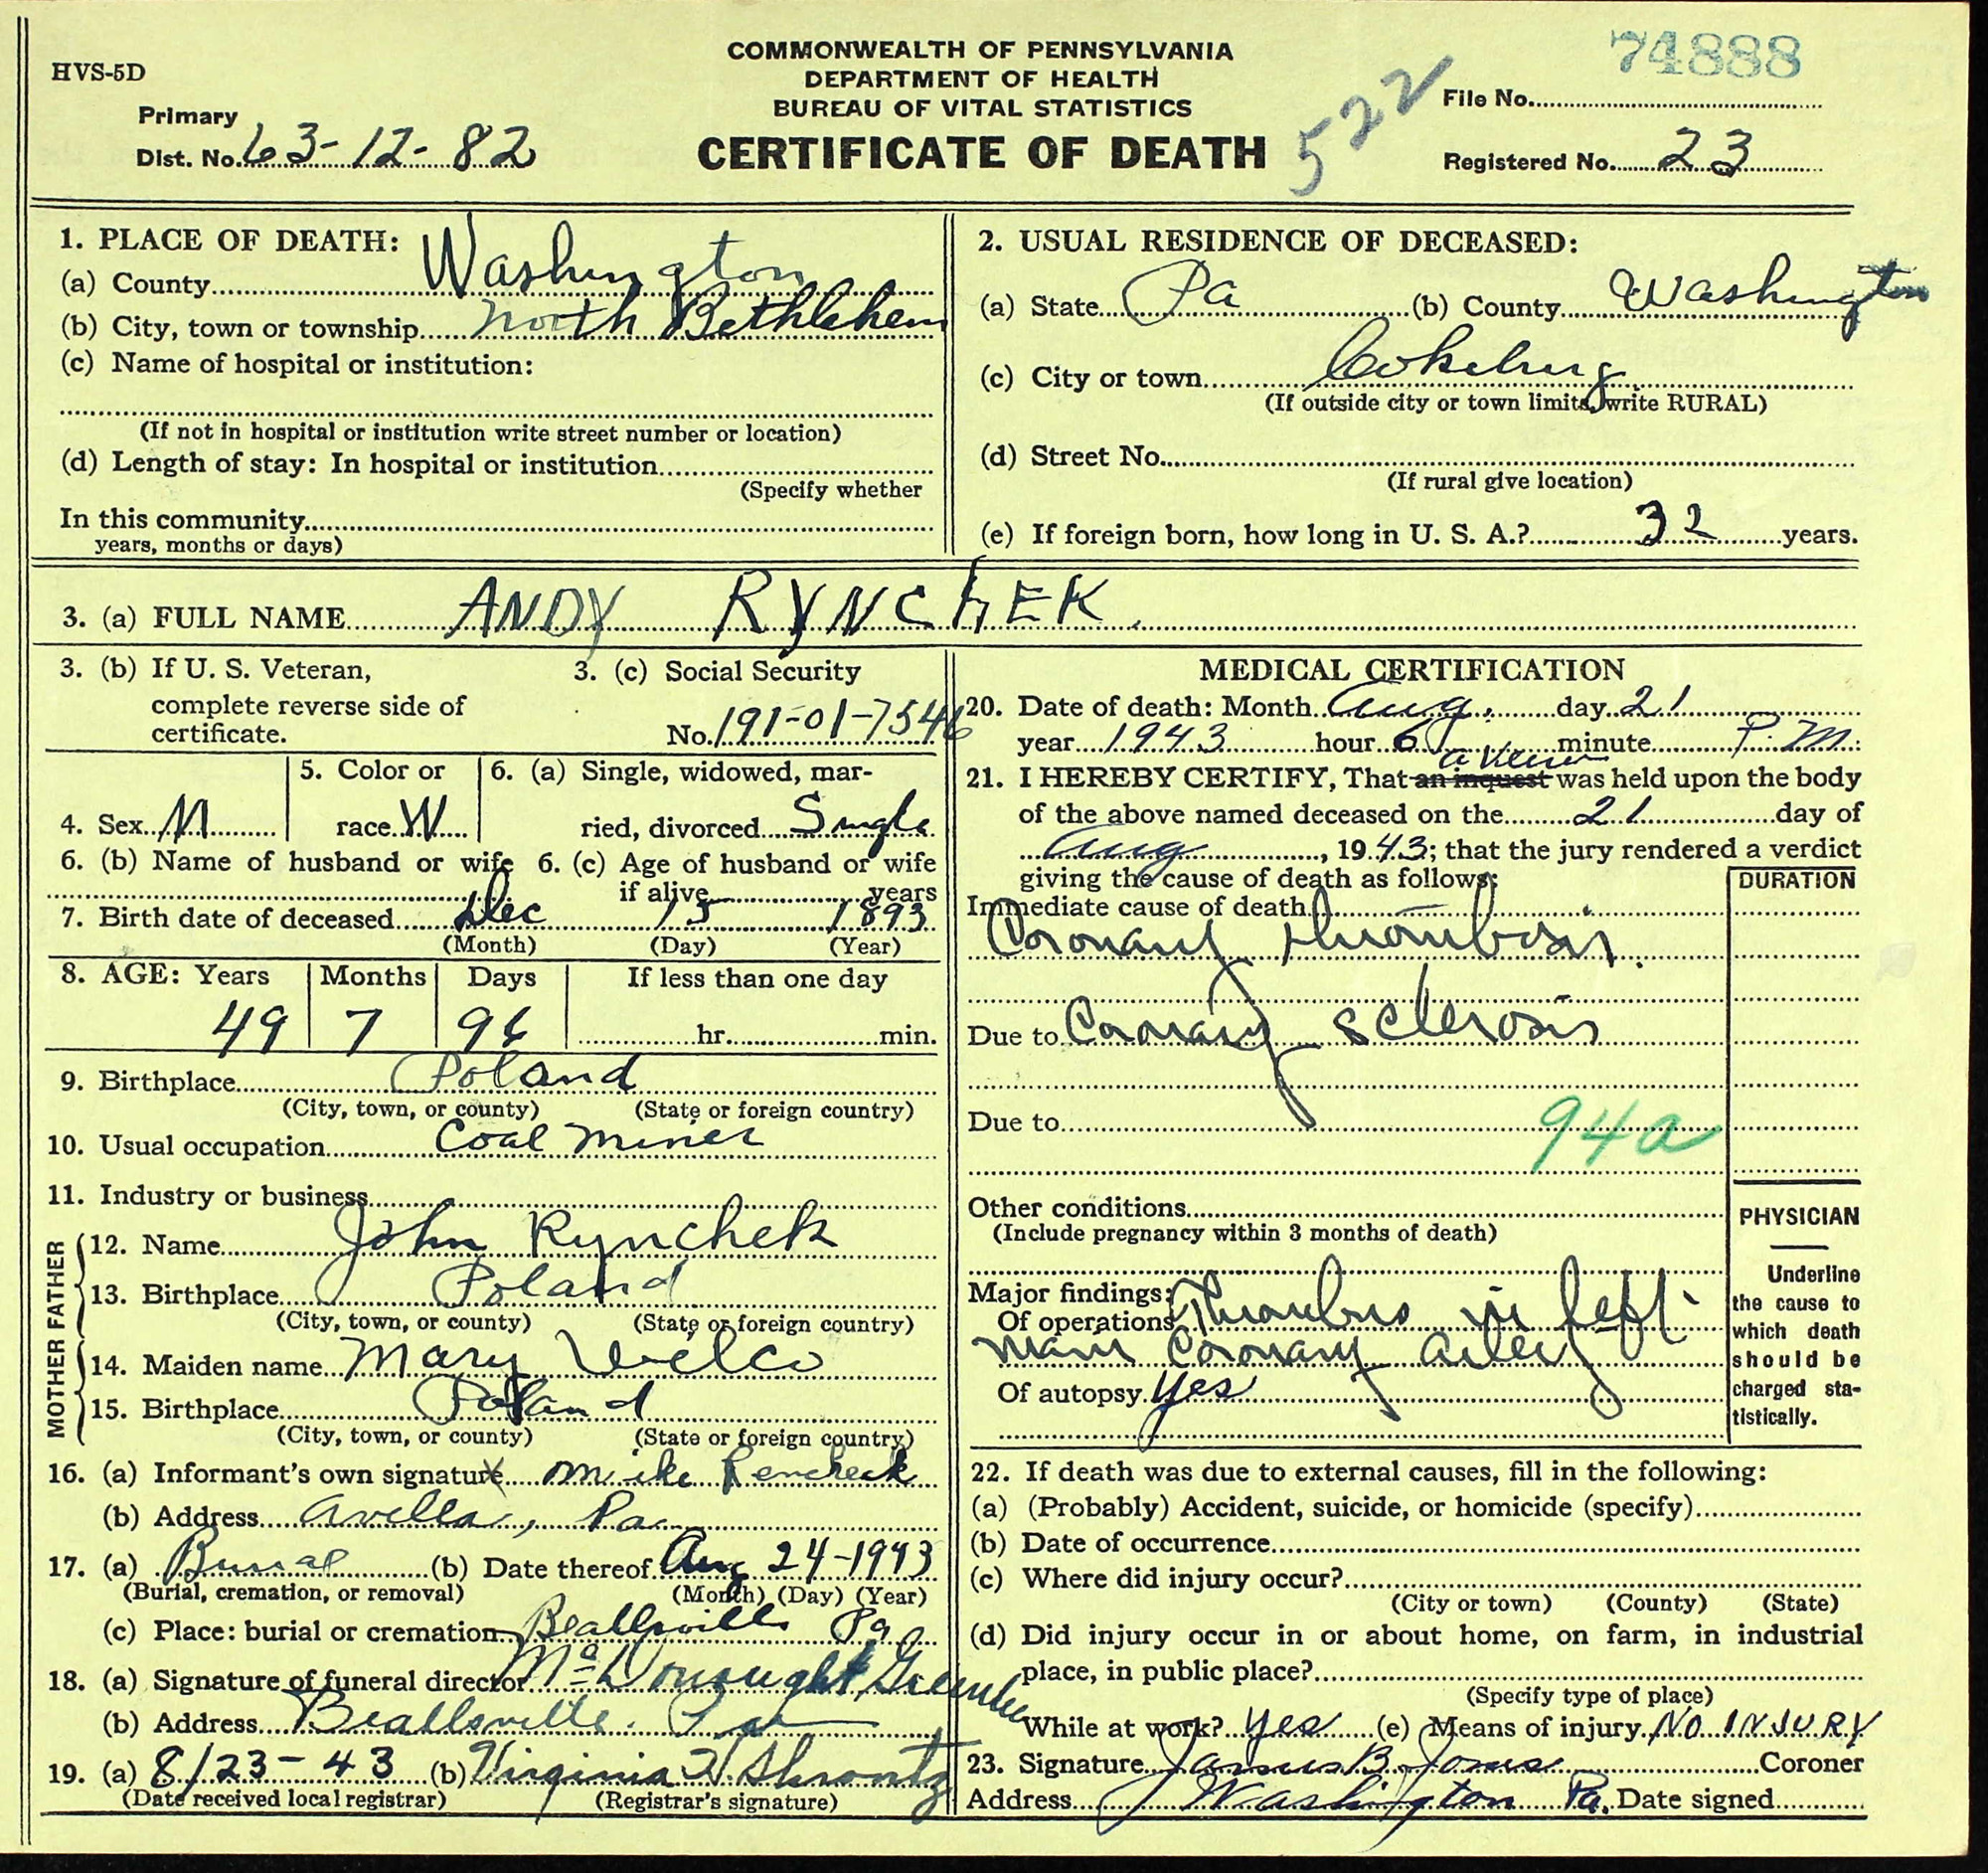 HVS-5D
COMMONWEALTH OF PENNSYLVANIA
DEPARTMENT OF HEALTH
BUREAU OF VITAL STATISTICS
CERTIFICATE OF DEATH
522
74888
File No.
Primary
Dist. No. 63-12-82
Registered No. 23
1. PLACE OF DEATH:
(a) County Washington
(b) City, town or township North Bethlehem
(c) Name of hospital or institution:
(If not in hospital or institution write street number or location)
(d) Length of stay: In hospital or institution
(Specify whether
In this community
years, months or days)
2. USUAL RESIDENCE OF DECEASED:
(a) State Pa (b) County Washington
(c) City or town Cokeburg
(If outside city or town limits, write RURAL)
(d) Street No.
(If rural give location)
(e) If foreign born, how long in U. S. A.? 32 years.
3. (a) FULL NAME ANDY RYNCHEK
3. (b) If U. S. Veteran,
complete reverse side of
certificate.
3. (c) Social Security
No. 191-01-7546
4. Sex M
5. Color or
race W
6. (a) Single, widowed, mar-
ried, divorced Single
6. (b) Name of husband or wife 6. (c) Age of husband or wife
if alive years
7. Birth date of deceased Dec 15 1893
(Month) (Day) (Year)
8. AGE: Years Months Days If less than one day
49 7 96 hr. min.
9. Birthplace Poland
(City, town, or county) (State or foreign country)
10. Usual occupation Coal Miner
11. Industry or business
FATHER
12. Name John Rynchek
13. Birthplace Poland
(City, town, or county) (State or foreign country)
MOTHER
14. Maiden name Mary Velco
15. Birthplace Poland
(City, town, or county) (State or foreign country)
16. (a) Informant's own signature Mike Rencheck
(b) Address Avella, Pa
17. (a) Burial (b) Date thereof Aug 24-1943
(Burial, cremation, or removal) (Month) (Day) (Year)
(c) Place: burial or cremation Beallsville Pa
18. (a) Signature of funeral director
(b) Address Beallsville. Pa
19. (a) 8/23-43 (b) Virginia Shrontz
(Date received local registrar) (Registrar's signature)
MEDICAL CERTIFICATION
20. Date of death: Month Aug. day 21
year 1943 hour 6 minute P.M.
a View
21. I HEREBY CERTIFY, That an inquest was held upon the body
of the above named deceased on the 21 day of
Aug, 1943; that the jury rendered a verdict
giving the cause of death as follows:
DURATION
Immediate cause of death
Coronary thrombosis.
Due to Coronary sclerosis
Due to
94a
Other conditions
(Include pregnancy within 3 months of death)
Major findings:
Of operations Thrombus in left
main Coronary artery
Of autopsy yes
PHYSICIAN
Underline
the cause to
which death
should be
charged sta-
tistically.
22. If death was due to external causes, fill in the following:
(a) (Probably) Accident, suicide, or homicide (specify)
(b) Date of occurrence
(c) Where did injury occur?
(City or town) (County) (State)
(d) Did injury occur in or about home, on farm, in industrial
place, in public place?
(Specify type of place)
While at work? yes (e) Means of injury NO INJURY
23. Signature James B. Jones Coroner
Address Washington Pa. Date signed